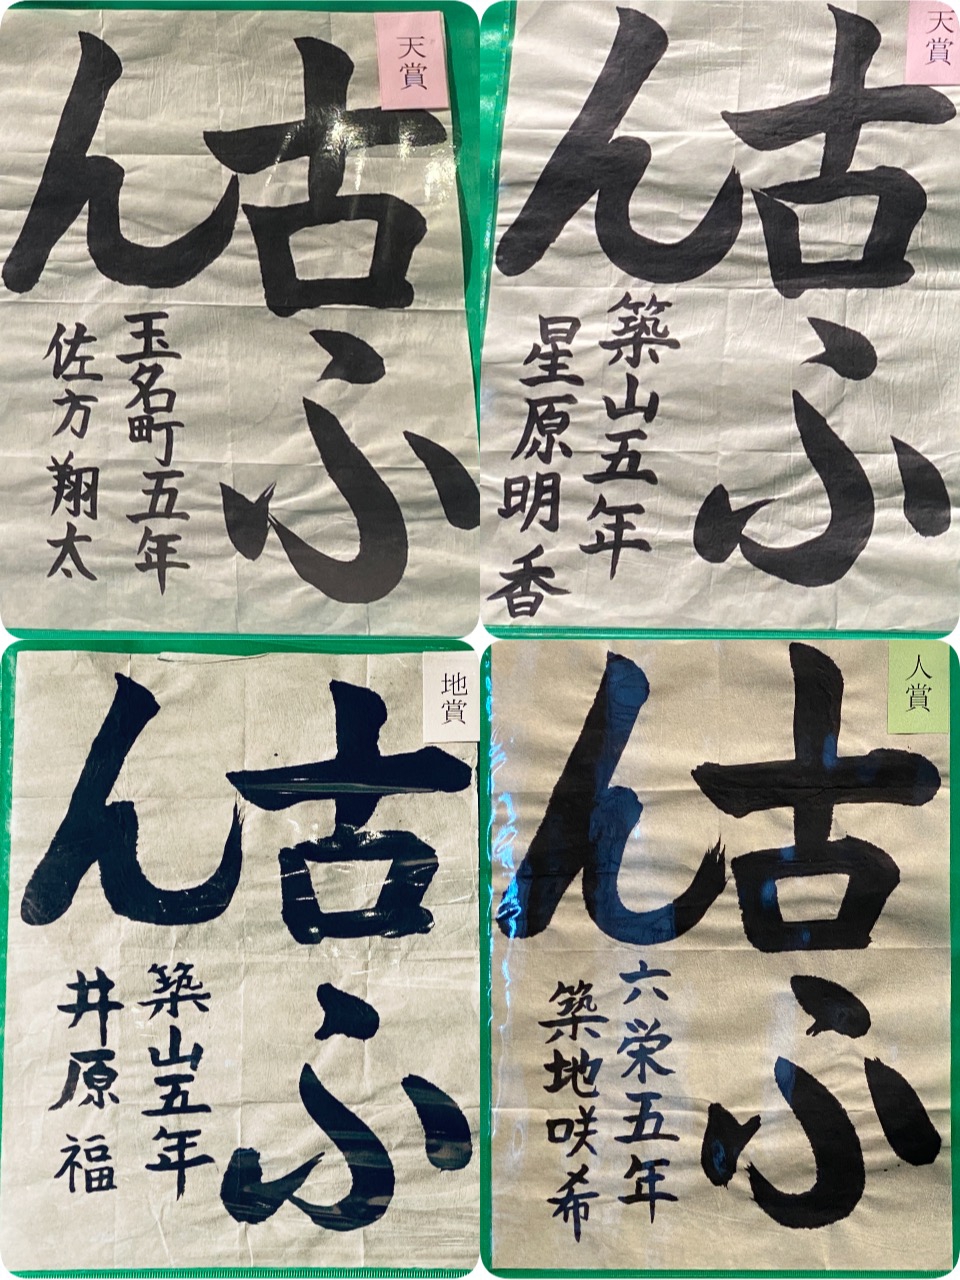 天賞
古ふん
玉名町五年
佐方翔太
天賞
古ふん
築山五年
星原明香
地賞
古ふん
築山五年
井原福
人賞
古ふん
六栄五年
築地咲希